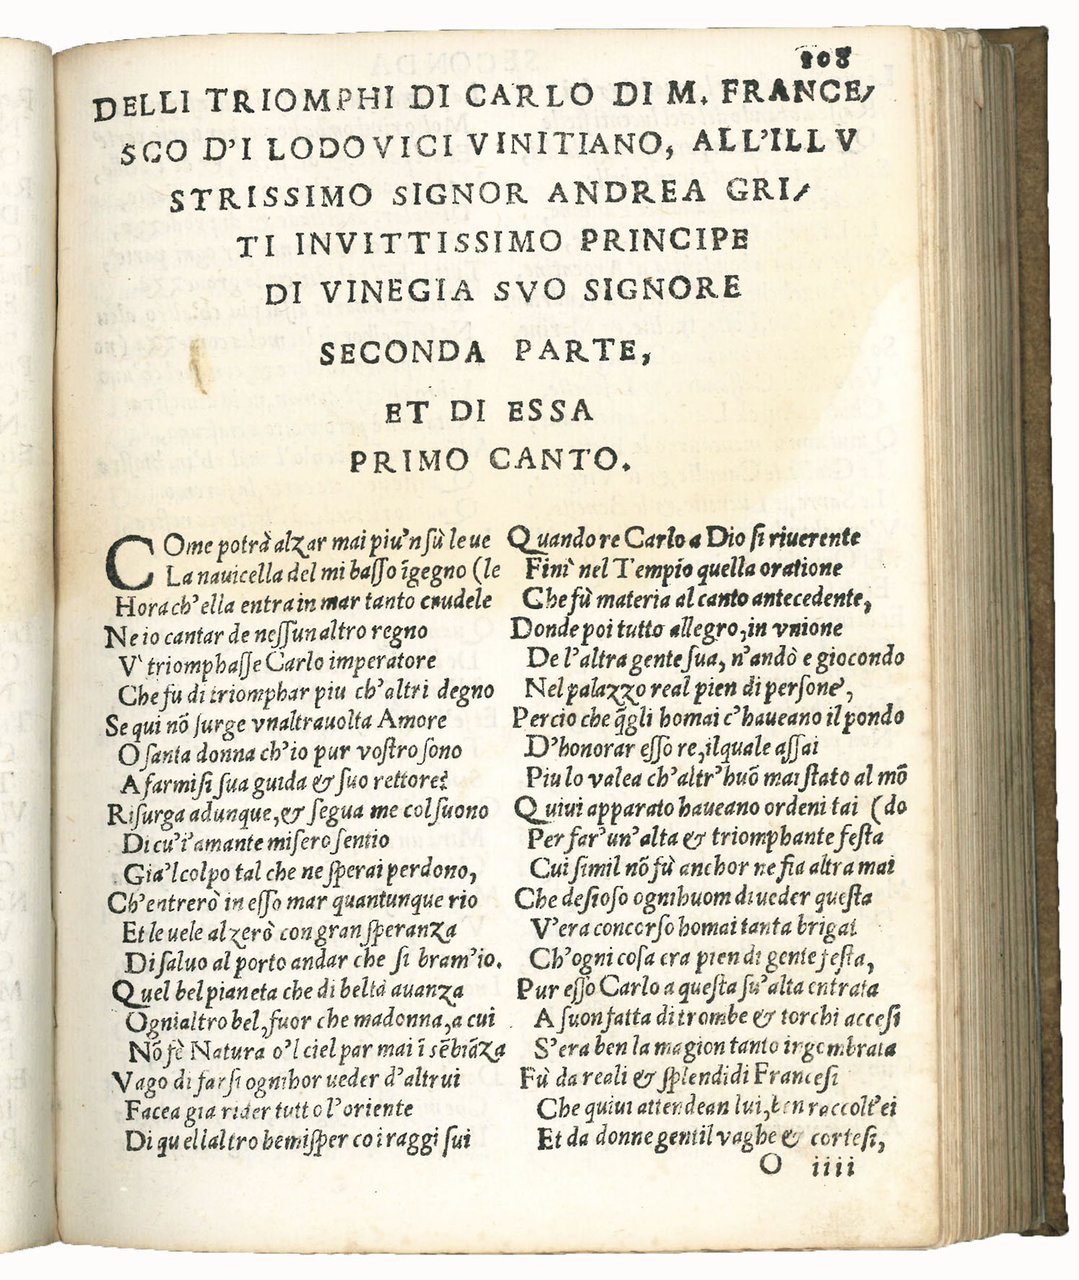 108
DELLI TRIOMPHI DI CARLO DI M. FRANCE/
SCO D'I LODOVICI VINITIANO, ALL'ILLV
STRISSIMO SIGNOR ANDREA GRI/
TI INVITTISSIMO PRINCIPE
DI VINEGIA SVO SIGNORE
SECONDA PARTE,
ET DI ESSA
PRIMO CANTO.
COme potrà alzar mai piu'n sù le ue
La nauicella del mi basso īgegno (le
Hora ch'ella entra in mar tanto crudele
Ne io cantar de nessun altro regno
V' triomphasse Carlo imperatore
Che fu di triomphar piu ch'altri degno
Se qui nõ surge vnaltrauolta Amore
O santa donna ch'io pur vostro sono
A farmisi sua guida & suo rettore?
Risurga adunque, & segua me col suono
Di cu'i' amante misero sentio
Gia'l colpo tal che ne sperai perdono,
Ch'entrerò in esso mar quantunque rio
Et le uele alzerò con gran speranza
Di saluo al porto andar che si bram'io.
Quel bel pianeta che di beltà auanza
Ogni altro bel, fuor che madonna, a cui
Nõ fè Natura o'l ciel par mai ī sẽbiãza
Vago di farsi ognihor ueder d'altrui
Facea gia rider tutto l'oriente
Di quell altro hemisper co i raggi sui
Quando re Carlo a Dio si riuerente
Finì nel Tempio quella oratione
Che fù materia al canto antecedente,
Donde poi tutto allegro, in vnione
De l'altra gente sua, n'andò e giocondo
Nel palazzo real pien di persone,
Percio che q̃gli homai c'haueano il pondo
D'honorar esso re, il quale assai
Piu lo valea ch'altr'huõ mai stato al mõ
Quiui apparato haueano ordeni tai (do
Per far'un'alta & triomphante festa
Cui simil nõ fù anchor ne fia altra mai
Che desioso ognihuom di ueder questa
V'era concorso homai tanta brigat
Ch'ogni cosa era pien di gente festa,
Pur esso Carlo a questa su'alta entrata
A suon fatta di trombe & torchi accesi
S'era ben la magion tanto ingombrata
Fù da reali & splendidi Francesi
Che quiui attendean lui, ben raccolt'ei
Et da donne gentil vaghe & cortesi,
O iiii